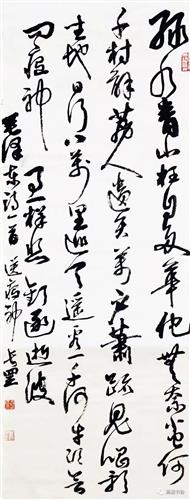 绿水青山枉自多華佗無奈小虫何
千村薜荔人遗矢萬户蕭疏鬼唱歌
坐地日行八萬里巡天遥看一千河牛郎欲
问瘟神事一樣悲歡逐逝波
毛澤东诗一首送瘟神